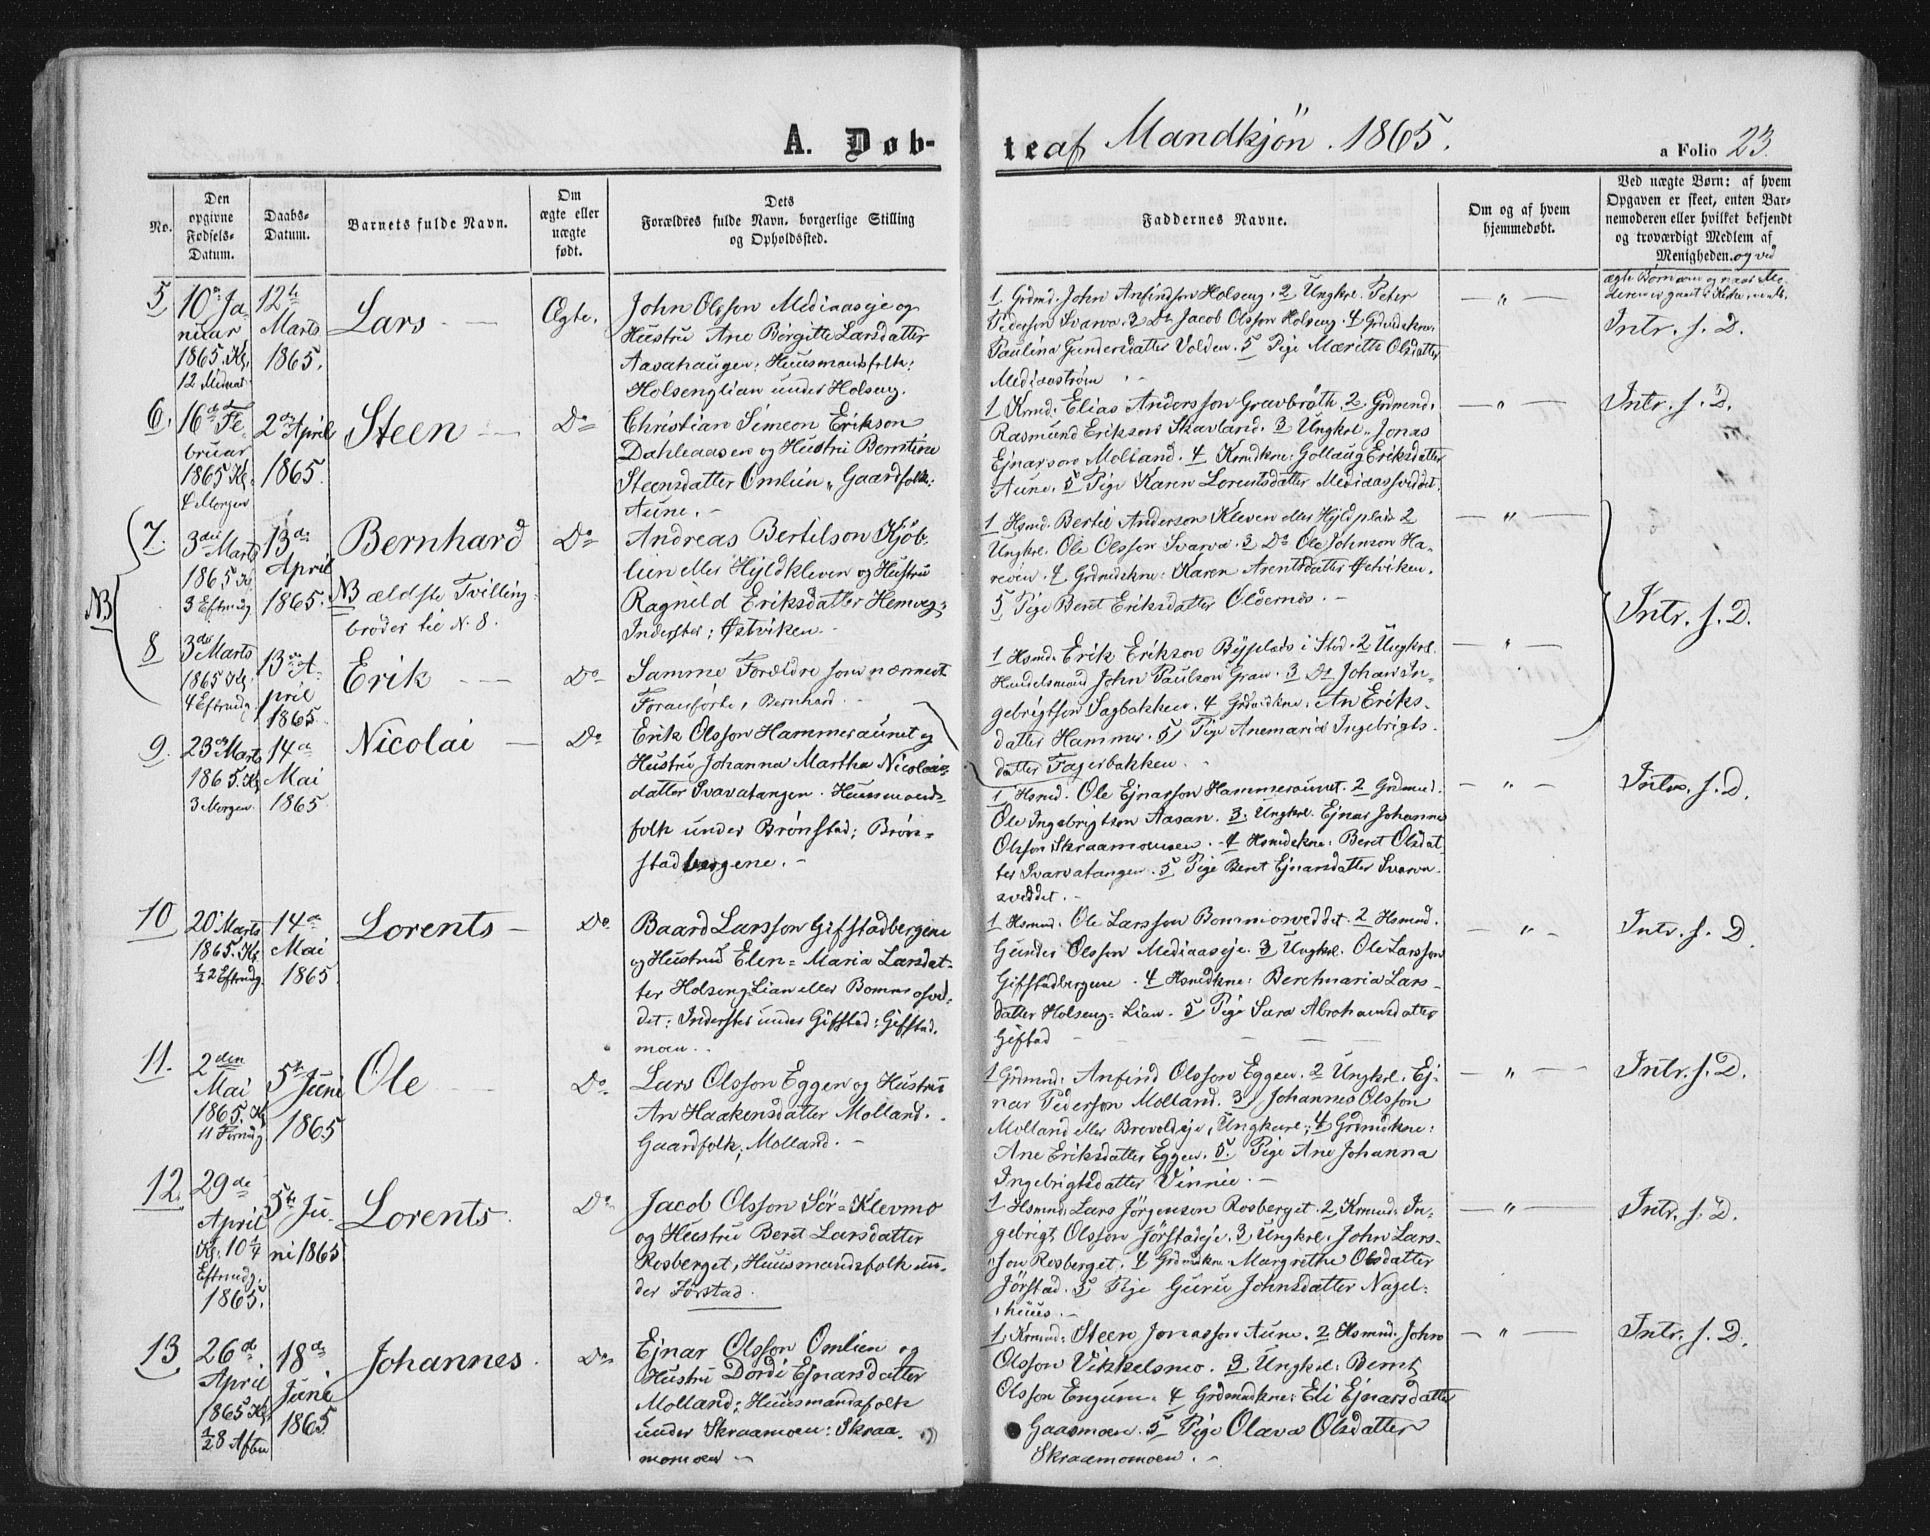 A. Døb-
te af Mandkjön 1865.
a Folio 23.
No.
Den opgivne Fødsels-Datum.
Daabs-Datum.
Barnets fulde Navn.
Om ægte eller uægte født.
Dets Forældres fulde Navn, borgerlige Stilling og Opholdssted.
Faddernes Navne.
Om og af hvem hjemmedøbt.
Ved uægte Børn: af hvem Opgaven er skeet, enten Barnemoderen eller hvilket bekjendt og troværdigt Medlem af Menigheden. og ved
5
10de Ja-
nuar
1865. Kl.
12 Midnat
12te
Marts
1865.
Lars
Ægte.
John Olsson Mediaaseje og
Hustru Ane Birgitte Larsdatter
Aasahaugen; Huusmandsfolk;
Holsenglian under Holseng.
1 Grdmd. John Anfindson Holseng. 2 Ungkrl. Peter
Pederson Svarva. 3 Do Jacob Olsson Holseng. 4 Grdmdskne.
Paulina Gundersdatter Volden. 5 Pige Mærith Olsdatter
Mediaaström
— " —
Intr. s. D.
6.
16de Fe-
bruar
1865 Kl.
4 Morgen
2den April
1865.
Steen
Do
Christian Simeon Erikson
Dahleaasen og Hustru Berntine
Steensdatter Omlien, Gaardfolk:
Aune.
1 Krmd. Elias Andersson Gravbröth. 2 Grdmnd.
Rasmund Erikson Skavland. 3 Ungkrl. Jonas
Ejnarson Molland. 4 Krmdkne: Gollaug Eriksdatter
Aune. 5 Pige Karen Lorentsdatter Mediaasveddet.
— " —
Intr. s. D.
NB
7.
3die Marts
1865 Kl.
3 Eftmdg
13de
April
1865.
Bernhard
NB ældste Tvilling-
broder til N. 8.
Do
Andreas Bertilson Kjöb-
lien eller Hyldkleven og Hustru
Ragnild Eriksdatter Hemveg;
Inderster; Østviken.
1 Hsmd. Bertil Anderson Kleven eller Hyldplads 2
Ungkrl. Ole Olsson Svarva. 3 Do Ole Johnson Ha-
reven. 4 Grdmdskne: Karen Arentsdatter Østviken.
5 Pige Beret Eriksdatter Oldernes.
— " —
Intr. s. D.
8
3die Marts
1865 Kl.
4 Eftmdg.
13de A-
pril
1865.
Erik
Do
Samme Forældre som nærmest
Foranförte, Bernhard.
1 Hsmd. Erik Erikson Byplads i Stod. 2 Ungkrl.
Handelsmand John Paulson Gran. 3 Do Johan In-
gebrigtson Sagbakken. 4 Grdmdkne. An Eriks-
datter Hammer. 5 Pige Anemaria Ingebrigts-
datter Fagerbakken.
— " —
9.
23de Marts
1865. Kl.
3 Morgen.
14de
Mai
1865
Nicolai
Do
Erik Olsson Hammeraunet og
Hustru Johanna Martha Nicolai-
datter Svavatangen. Huusmands-
folk under Brönstad; Brön-
stadbergene.
1 Hsmd. Ole Ejnarsson Hammeraunet. 2 Grdmnd.
Ole Ingebrigtson Aasan. 3. Ungkrl. Ejnar Johannes
Olsson Skraamouen. 4 Hsmdskne: Beret Olsdat-
ter Svarvatangen. 5 Pige Beret Ejnarsdatter Svarva-
sveddet.
— " —
Intr. s. D.
10
20de Marts
1865. Kl.
½2 Eftmdg.
14de
Mai
1865.
Lorents
Do
Baard Larsson Gifstadbergene
og Hustru Elen-Maria Larsdat-
ter Holseng-Lian eller Bommosved-
det: Inderster under Gifstad: Gifstad-
moen.
1 Hsmnd. Ole Larsson Bommosveddet. 2 Hsmnd.
Gunder Olsson Mediaaseje. 3 Ungkrl. Ole Larsson
Gifstadbergene. 4 Hsmdkne: Berethmaria Lars-
datter Holseng-Lian. 5 Pige Sara Abrahamsdatter
Gifstad
— " —
Intr. s. D.
11.
2den
Mai
1865. Kl.
11 Formdg
5te Juni
1865
Ole
Do
Lars Olsson Eggen og Hustru
An Haakensdatter Molland.
Gaardfolk; Molland.
1 Grdmnd: Anfind Olsson Eggen. 2 Ungkrl. Ej-
nar Pederson Molland. 3 Johannes Olsson
Molland eller Brevoldseje, Ungkarl; 4 Grdmdkne:
Ane Eriksdatter Eggen. 5. Pige Ane Johanna
Ingebrigtsdatter Vinnie.
— " —
Intr. s. D.
12.
29de
April
Kl. 10¼
Eftmdg.
1865.
5te Ju-
ni 1865
Lorents
Do
Jacob Olsson Sör-Klevmo
og Hustru Beret Larsdatter
Rosberget, Huusmandsfolk un-
der Förstad.
1 Hsmnd. Lars Jörgenson Rosberget. 2 Krmnd: In-
gebrigt Olsson Jörstadeje. 3 Ungkrl. John Lars-
son Rosberget. 4 Grdmdkne Margrethe Olsdatter
Jörstad. 5 Pige Guru Johnsdatter Nagel-
huus.
— " —
Intr. s. D.
13
26de
April
1865 Kl.
½8 Aften
18de
Juni
1865
Johannes
Do
Ejnar Olsson Omlien og
Hustru Dordi Ejnarsdatter
Molland; Huusmandsfolk
under Skraamoen: Skraa-
momoen
1 Krmnd: Steen Jonasson Aune. 2 Hsmnd. John
Olsson Vikkelsmo. 3 Ungkrl: Bernt
Olsson Engum. 4 Grdmndkne: Eli Ejnarsdatter
Gaasmoen. 5 Pige Olava Olsdatter
Skraamomoen.
— " —
Intr. s. D.